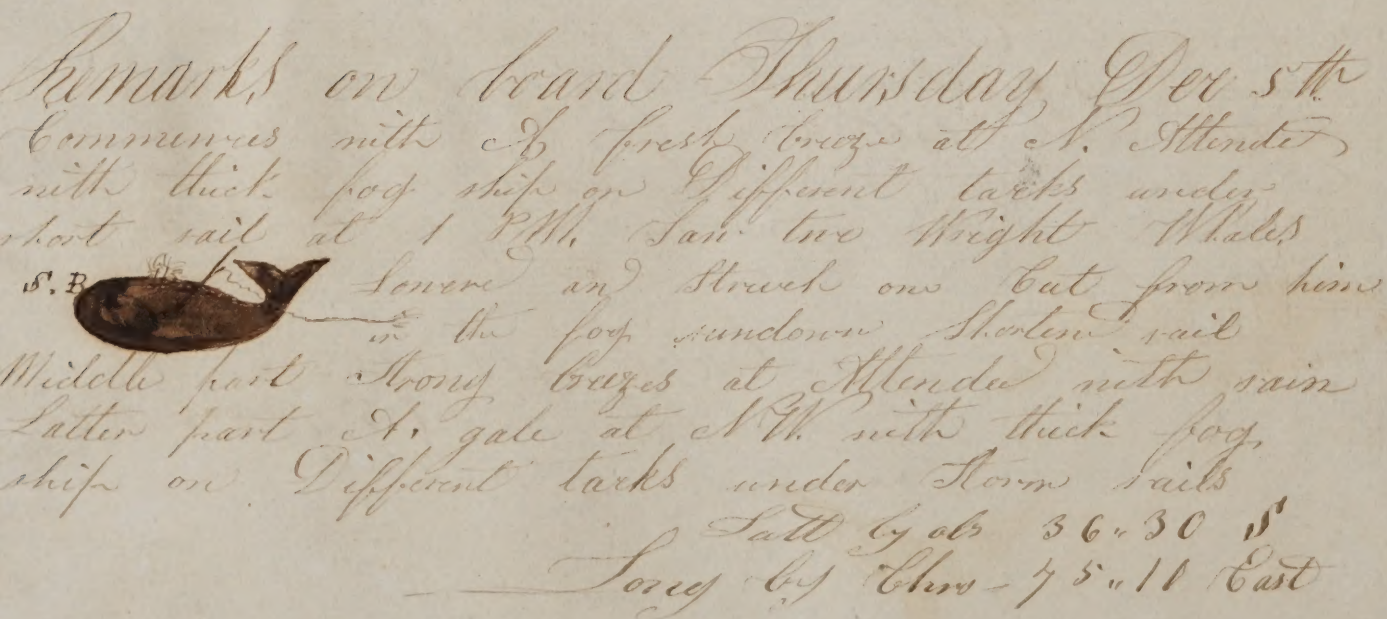 Remarks on board Thursday Dec 5th
Commences with A fresh breeze at N. Attended
with thick fog ship on Different tacks under
short sail at 1 P.M. Saw two Wright Whales
S. B Lowerd and Struck one Cut from him
in the fog sundown Shorten sail
Middle part Strong breezes at Attended with rain
Latter part A. gale at N.W. with thick fog
ship on Different tacks under Storm sails
Latt by obs 36..30 S
Long by Chro - 75..11 East